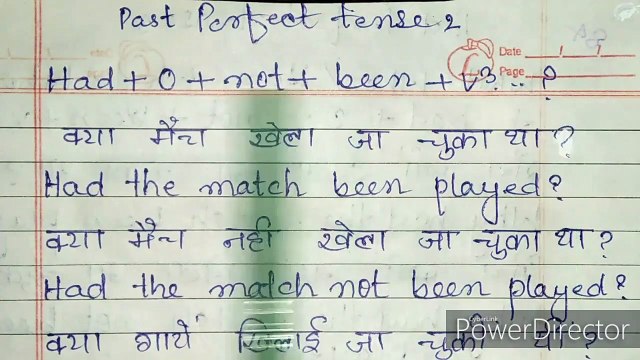 Past Perfect tense 2
Date
Page
Had + O + not + been + V3 .. ?
क्या मैच खेला जा चुका था ?
Had the match been played?
क्या मैच नही खेला जा चुका था ?
Had the match not been played?
क्या गायें खिलाई जा चुकी थी ?
CyberLink
PowerDirector